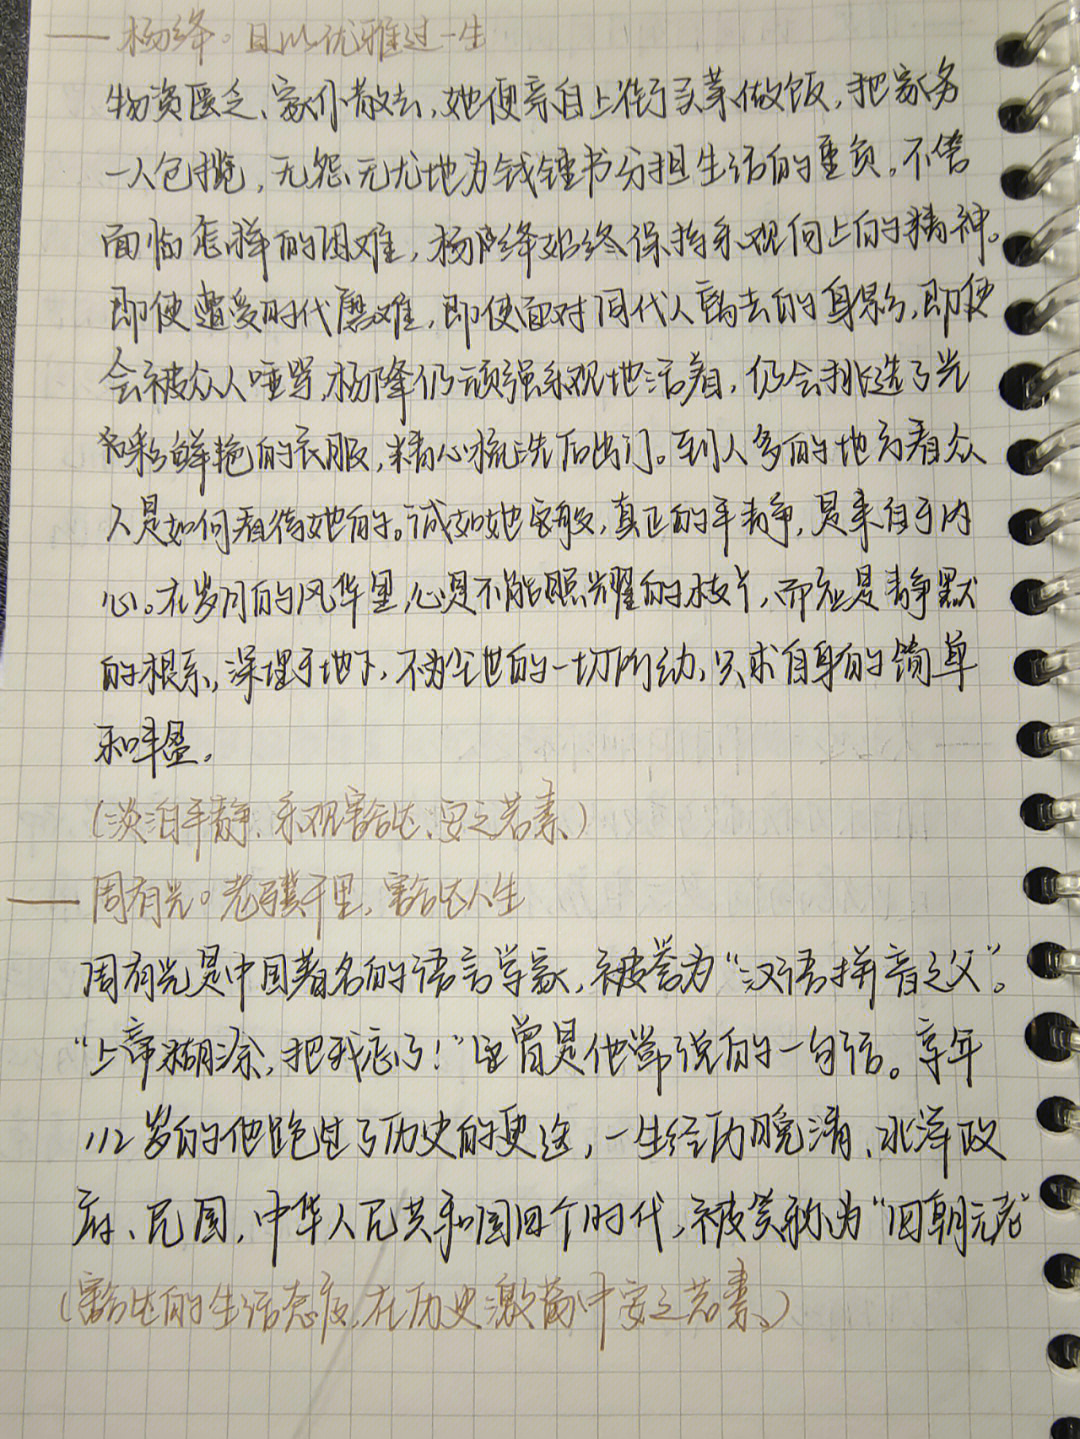 ——杨绛。且以优雅过一生
物资匮乏、家仆散去，她便亲自上街买菜做饭，把家务
一人包揽，无怨无尤地为钱锺书分担生活的重负。不管
面临怎样的困难，杨绛始终保持乐观向上的精神。
即便遭受时代磨难，即便面对同代人离去的身影，即便
会被众人唾骂，杨绛仍顽强乐观地活着，仍会挑选了光
彩鲜艳的衣服，精心梳洗后出门。到人多的地方看众
人是如何看待她的。诚如她安般，真正的平静，是来自于内
心。在岁月的风华里，心是不能照耀的枝片，而应是静默
的根系，深埋于地下，不为尘世的一切所动，只求自身的简单
和丰盈。
（淡泊平静、乐观豁达、安之若素）
——周有光。老骥千里，豁达人生
周有光是中国著名的语言学家，被誉为“汉语拼音之父”。
“上帝糊涂，把我忘了！”这曾是他常说的一句话。享年
112岁的他跑过了历史的更迭，一生经历晚清、北洋政
府、民国，中华人民共和国四个时代，被笑称为“四朝元老”
（豁达的生活态度，在历史激荡中安之若素）